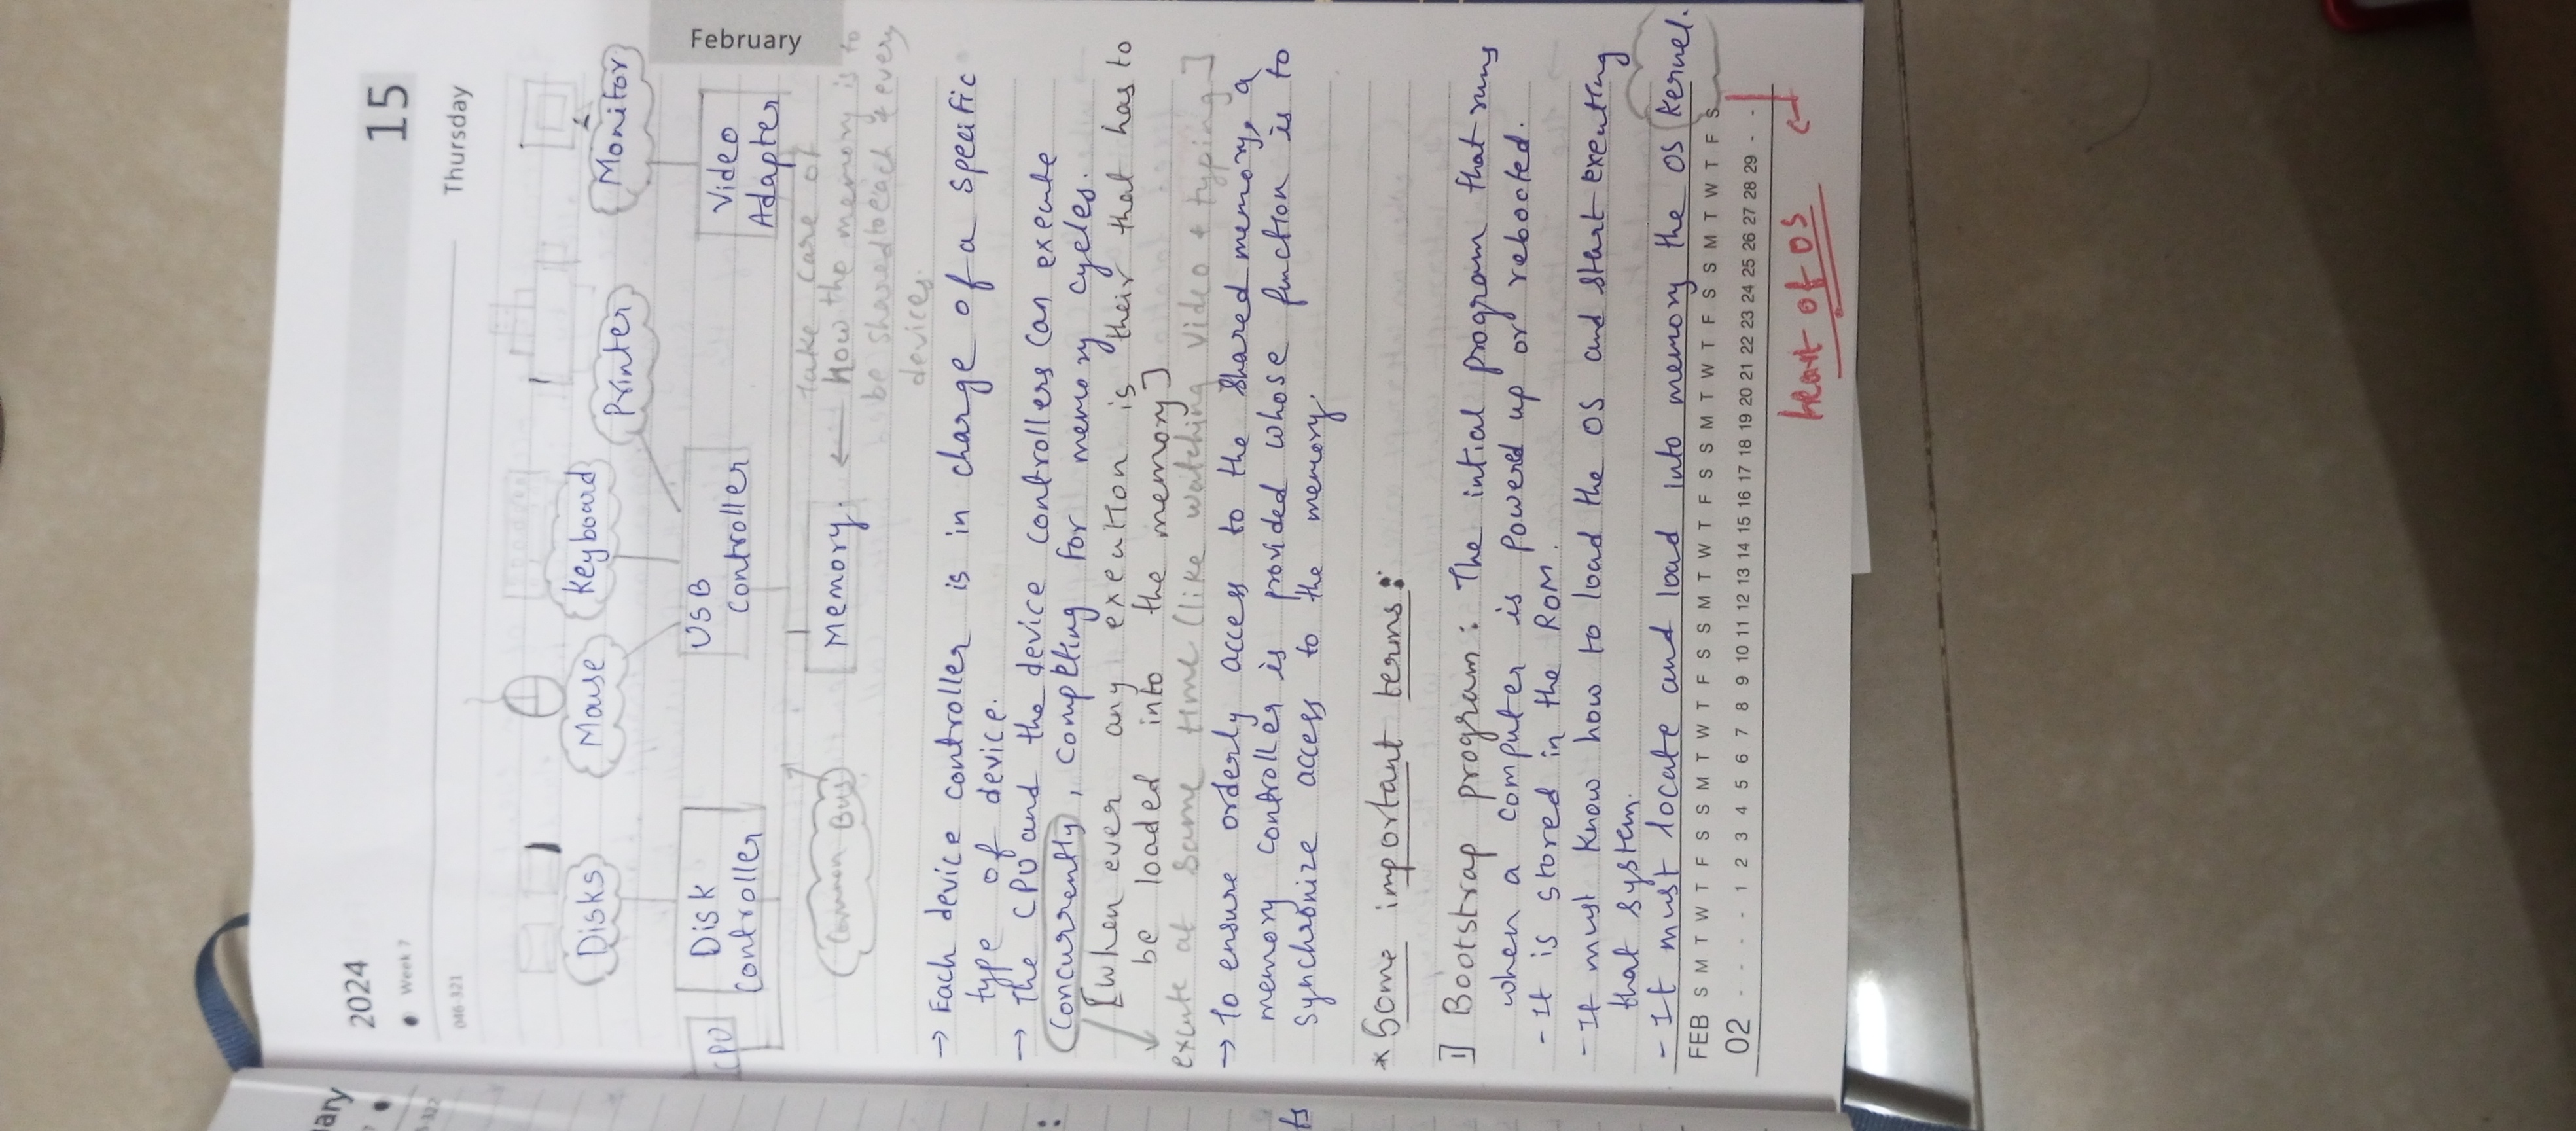 2024
15
• Week 7
February
046-321
Thursday
Disks
Mouse
Keyboard
Printer
Monitor
CPU
Disk
Controller
USB
Controller
Video
Adapter
Common Bus
Memory.
take care of
how the memory is to
be shared to each & every
devices.
→ Each device controller is in charge of a specific
type of device.
→ The CPU and the device controllers can execute
Concurrently, completing for memory cycles.
[when ever any exeution is their that has to
be loaded into the memory]
excute at same time (like watching video & typing]
→ To ensure orderly access to the shared memory, a
memory controller is provided whose function is to
synchronize access to the memory.
* Some important terms:
1] Bootstrap program: The intial program that runs
when a computer is powered up or rebooted.
- It is stored in the ROM.
- It must know how to load the OS and start executing
that system.
- It must locate and load into memory the OS kernel.
FEB S M T W T F S S M T W T F S S M T W T F S S M T W T F S S M T W T F S
02 - - - - 1 2 3 4 5 6 7 8 9 10 11 12 13 14 15 16 17 18 19 20 21 22 23 24 25 26 27 28 29 - -
heart of OS